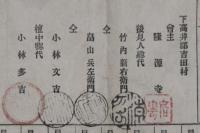 下高井郡吉田村
會主
隆源寺
後見人總代
竹內源右衛門
仝
畠山兵左衛門
仝
小林文吉
檀中總代
小林多吉